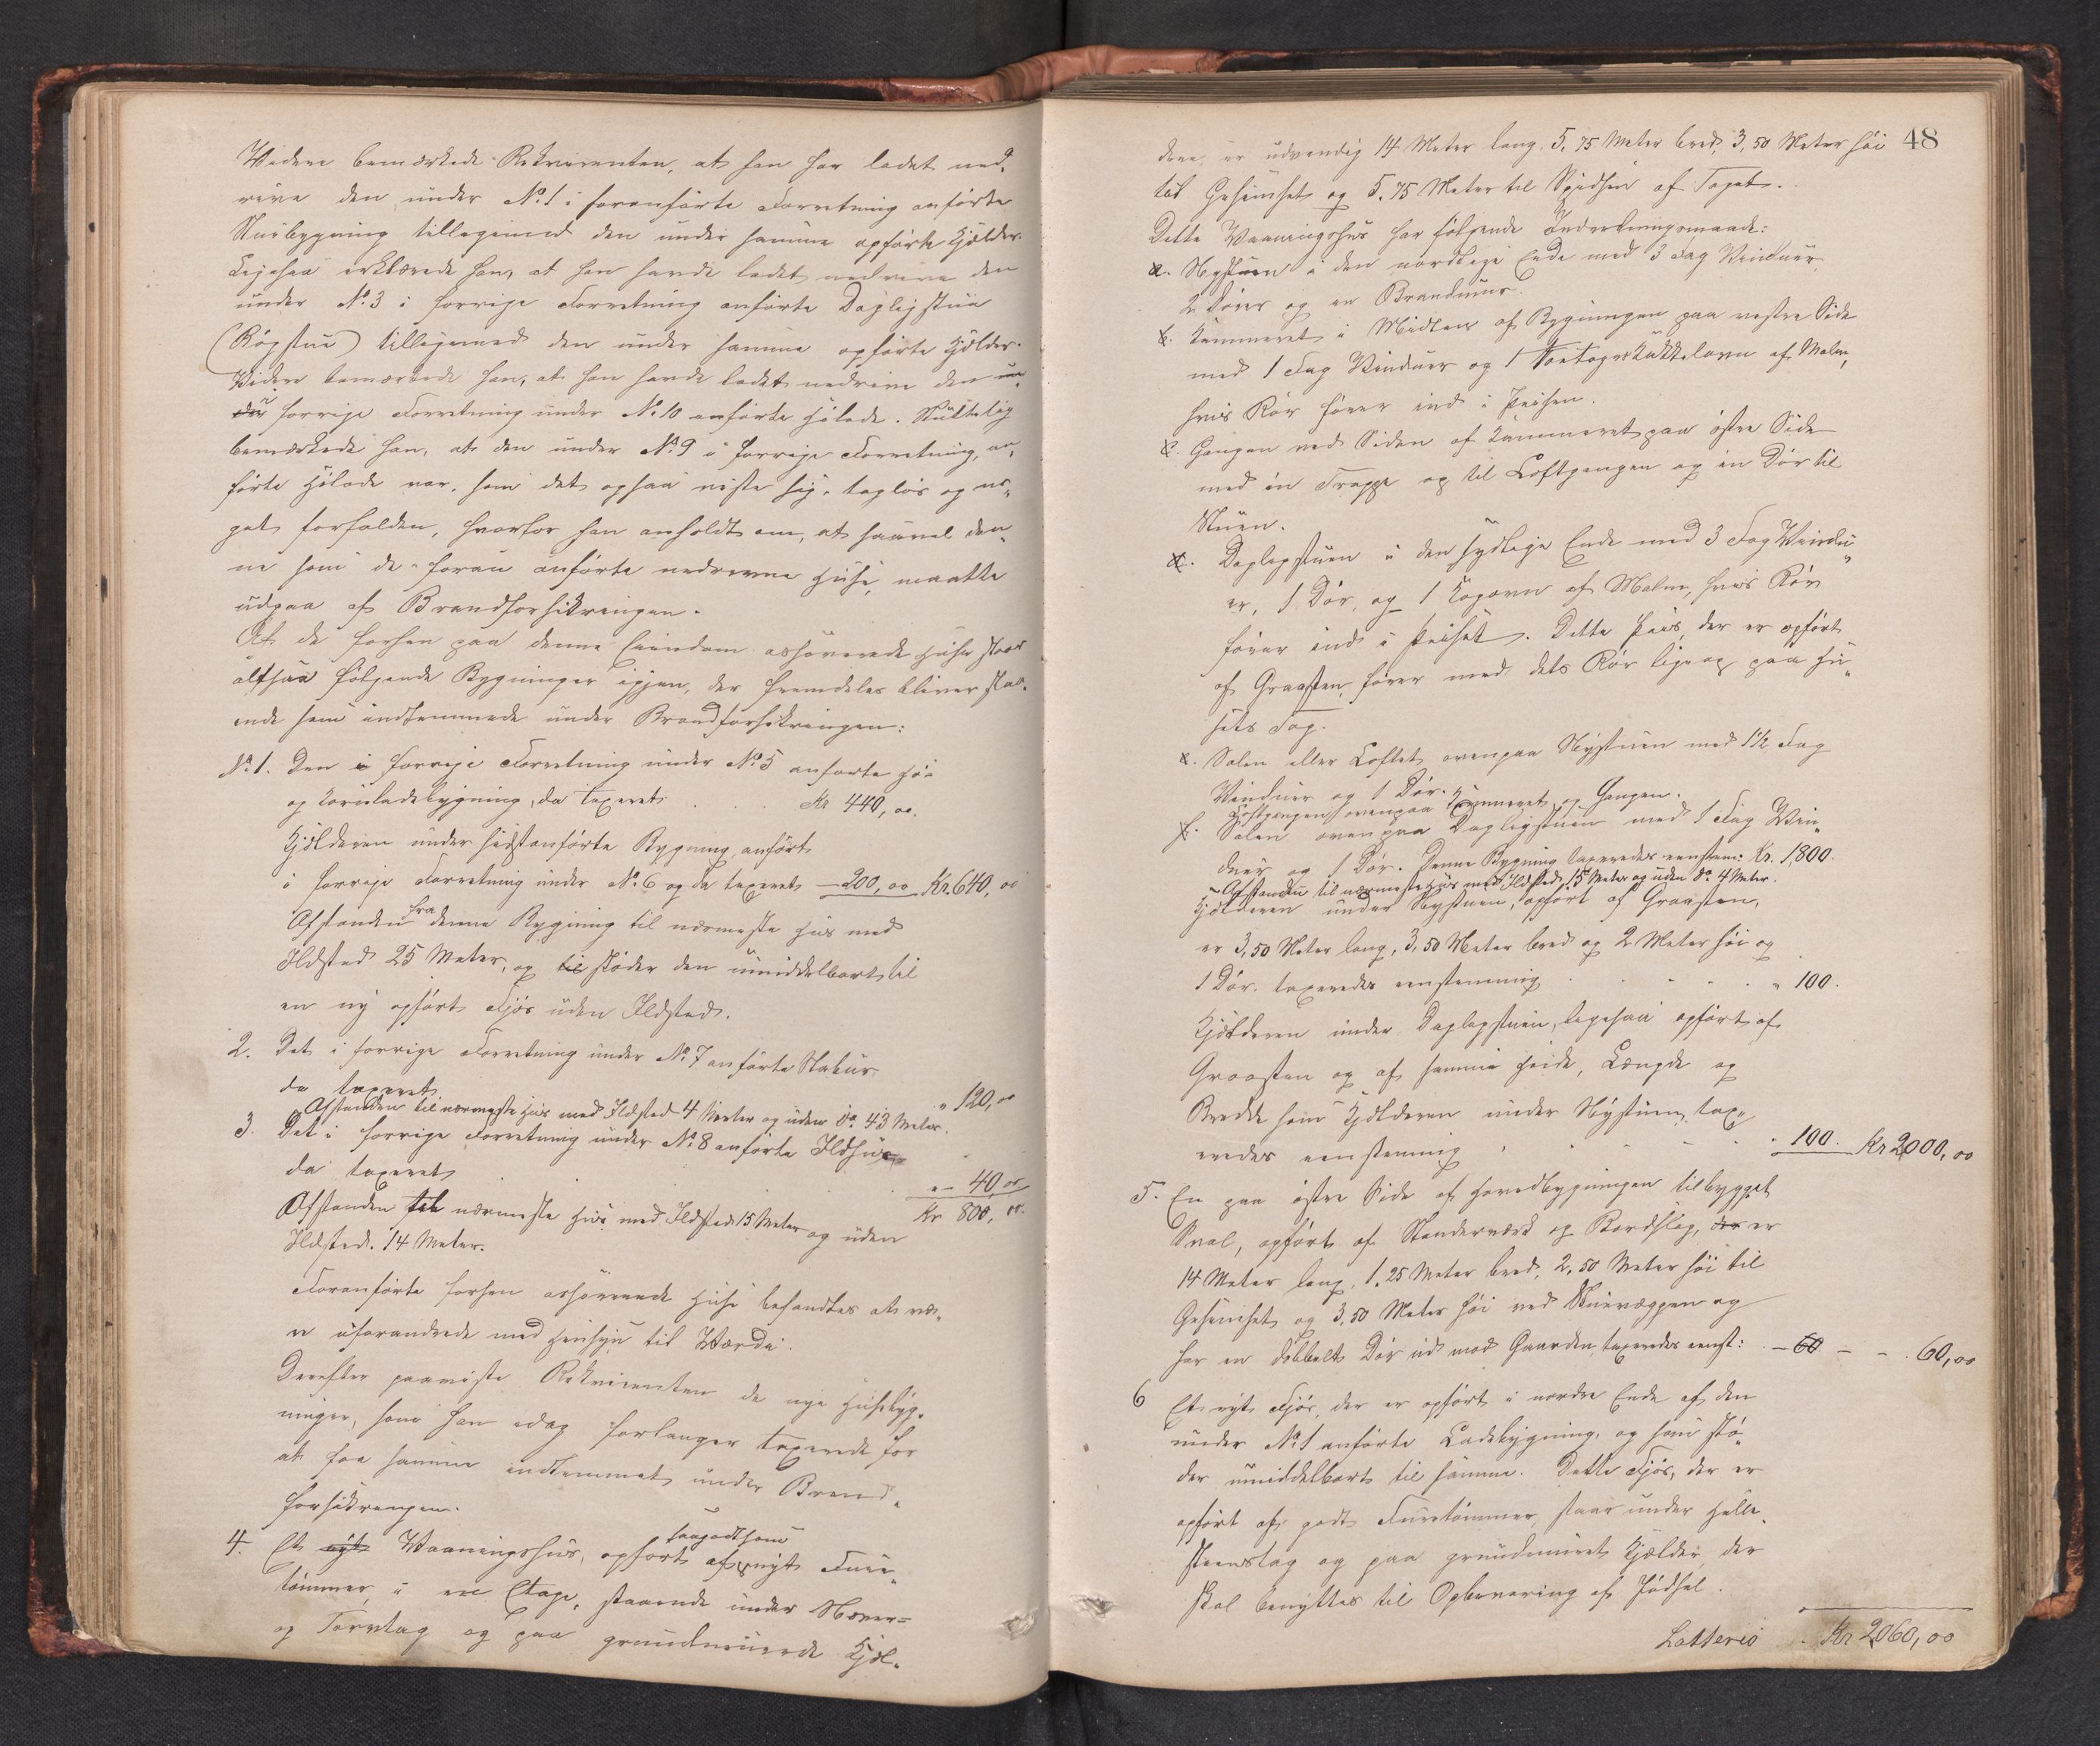 Videre bemærkede Rekvirenten, at han har ladet ned-
rive den under No. 1 i foranførte Forretning anførte
Stuebygning tillegemed den under samme opførte Kjælder.
Ligesaa erklærede han, at han havde ladet nedrive den
under No. 3 i forrige Forretning anførte Dagligstue
(Røgstue) tilligemed den under samme opførte Kjælder.
Videre bemærkede han, at han havde ladet nedrive den un-
der forrige Forretning under No. 10 anførte Hølade. Sluttelig
bemærkede han, at den under No. 9 i forrige Forretning, an-
førte Hølade var, som det ogsaa viste sig, tagløs og me-
get forfalden, hvorfor han anholdt om, at saavel den-
ne som de foran anførte nedrevne Huse, maatte
udgaa af Brandforsikringen.
Af de forhen paa denne Eiendom assurerede Huse staar
altsaa følgende Bygninger igjen, der fremdeles bliver staa-
ende som indlemmede under Brandforsikringen:
No. 1. Den i forrige Forretning under No. 5 anførte Hø-
og Kornladebygning, da taxeret . . . Kr 440,00.
Kjælderen under sidstanførte Bygning, anført
i forrige Forretning under No. 6 og da taxeret — 200,00 Kr. 640,00
Afstanden fra denne Bygning til nærmeste Hus med
Ildsted 25 Meter, og til støder den umiddelbart til
en ny opført Fjøs uden Ildsted.
2. Det i forrige Forretning under No. 7 anførte Stabur
da taxeret " 120,00
Afstanden til nærmeste Hus med Ildsted 4 Meter og uden do. 43 Meter.
3. Det i forrige Forretning under No. 8 anførte Ildhus
da taxeret " — 40,00
Kr 800,00.
Afstanden til nærmeste Hus med Ildsted 15 Meter og uden
Ildsted. 14 Meter.
Foranførte forhen assurerede Huse befandtes at væ-
re uforandrede med Hensyn til Værdi.
Derefter paaviste Rekvirenten de nye Husebyg-
ninger, som han idag forlanger taxerede for
at faa samme indlemmet under Brand-
forsikringen.
4. Et nyt Vaaningshus, opført af saagodtsom nyt Furu-
tømmer, i en Etage, staaende under Næver-
og Torvtag og paa grundmurede Kjæl-
48
dere, er udvendig 14 Meter lang, 5,75 Meter bred, 3,50 Meter høi
til Gesimset og 5,75 Meter til Spidsen af Taget.
Dette Vaaningshus har følgende Indretningsmaade:
a. Nystuen i den nordlige Ende med 3 Fag Vinduer,
2 Døre og en Brandmuur.
b. Kammeret i Midten af Bygningen paa vestre Side
med 1 Fag Vinduer og 1 Toetages Kakkelovn af Malm,
hvis Rør fører ind i Peisen.
c. Gangen ved Siden af Kammeret paa østre Side
med en Trappe op til Loftgangen og en Dør til
Stuen.
d. Dagligstuen i den sydlige Ende med 3 Fag Vindu-
er, 1 Dør, og 1 Kogovn af Malm, hvis Rør
fører ind i Peiset. Dette Peis, der er opført
af Graasten, fører med dets Rør lige op paa Hu-
sets Tag.
e. Salen eller Loftet ovenpaa Nystuen med 1½ Fag
Vinduer og 1 Dør.
Loftgangen ovenpaa Kammeret og Gangen.
f. Salen ovenpaa Dagligstuen med 1 Fag Vin-
duer og 1 Dør. Denne Bygning taxeredes eenstem: Kr. 1,800.
Afstanden til nærmeste Hus med Ildsted 15 Meter og uden do. 4 Meter.
Kjælderen under Nystuen, opført af Graasten,
er 3,50 Meter lang, 3,50 Meter bred og 2 Meter høi og
1 Dør. taxeredes eenstemmig . . . " 100.
Kjælderen under Dagligstuen, ligesaa opført af
Graasten og af samme Høide, Længde og
Bredde som Kjælderen under Nystuen, tax-
eredes eenstemmig . . . 100. Kr 2000,00
5. En paa østre Side af Hovedbygningen tilbygget
Sval, opført af Standerværk og Bordslag, der er
14 Meter lang, 1,25 Meter bred, 2,50 Meter høi til
Gesimset og 3,50 Meter høi ved Stuevæggen og
har en dobbelt Dør ud mod Gaarden, taxeredes eenst: — 60 — - . 60,00
6 Et nyt Fjøs, der er opført i nordre Ende af den
under No. 1 anførte Ladebygning, og som stø-
der umiddelbart til samme. Dette Fjøs, der er
opført af godt Furutømmer, staar under Helle-
steenstag og paa grundmuret Kjælder, der
skal benyttes til Opbevaring af Gjødsel.
Latteris . Kr 2,060,00